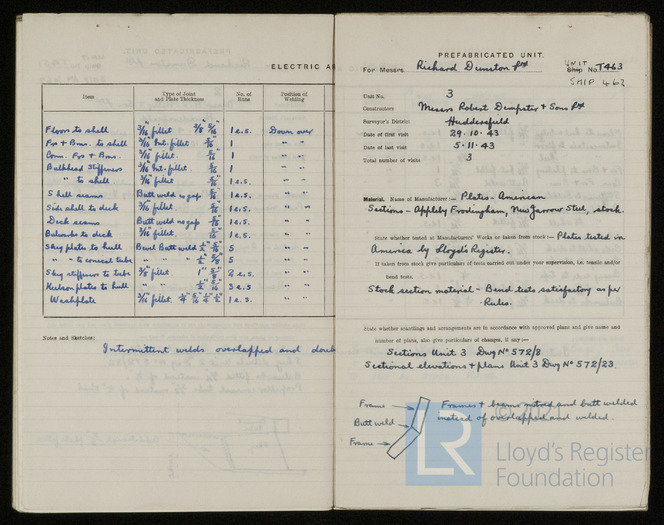 ELECTRIC AR
Item
Type of Joint and Plate Thickness
No. of Runs
Position of Welding
Floors to shell 3/16" fillet 3/8" 5/16" 1 e.s. Down over
Frs + Bms. to shell 3/16" Int. fillet 5/16" 1 " "
Conn. Frs + Bms. 3/16" fillet 5/16" 1 " "
Bulkhead Stiffeners 3/16" Int. fillet 1 " "
" to shell 3/16" fillet 1 e.s. " "
Shell seams Butt weld no gap 1 e.s. " "
Side shell to deck 3/16" fillet 1 e.s. " "
Deck seams Butt weld no gap 1 e.s. " "
Bulwarks to deck 3/16" fillet 1 e.s. " "
Skeg plates to hull Bevel Butt weld 5 " "
" " to conical tube " " 5 " "
Skeg stiffener to tube 3/8" fillet 1" 2 e.s. " "
Keelson plates to hull " " 3 e.s " "
Washplate 3/16" fillet 1 e.s. " "
Notes and Sketches:
Intermittent welds overlapped and doub
PREFABRICATED UNIT.
For Messrs. Richard Dunston Ltd UNIT Ship No. T463
SHIP 463
Unit No. 3
Constructors Messrs Robert Dempster & Sons Ltd
Surveyor's District Huddersfield
Date of first visit 29.10.43
Date of last visit 5.11.43
Total number of visits 3
Material. Name of Manufacturer:— Plates- American
Sections- Appleby Frodingham, New Jarrow Steel, stock.
State whether tested at Manufacturers' Works or taken from stock:— Plates tested in
America by Lloyd's Register.
If taken from stock give particulars of tests carried out under your supervision, i.e. tensile and/or
bend tests.
Stock section material - Bend tests satisfactory as per
Rules.
State whether scantlings and arrangements are in accordance with approved plans and give name and
number of plans, also give particulars of changes, if any:—
Sections Unit 3 Dwg No 572/8
Sectional elevations + plans Unit 3 Dwg No 572/23.
Frame
Butt weld
Frame
Frames + beams mitred and butt welded
instead of overlapped and welded.
©
LR
Lloyd's Register
Foundation